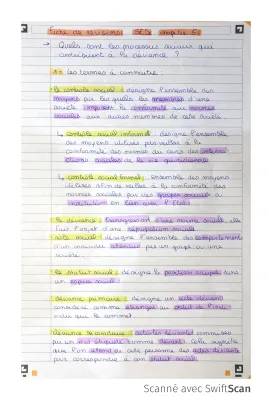 Fiche de révisions SES chapitre 5
→ Quels sont les processus sociaux qui
contribuent à la déviance ?
les termes à connaître
le contrôle social : désigne l'ensemble des
moyens par les quelles les membres d'une
société imposent la conformité aux normes
sociales aux autres membres de cette société
↳ contrôle social informel : désigne l'ensemble
des moyens utilisés pour veiller à la
conformité des normes au sein des
sociales de la vie quotidienne
↳ contrôle social formel : ensemble des moyens
utilisés afin de veiller à la conformité des
normes sociales par des groupes sociaux
institution en lien avec l'État
la déviance : transgression d'une norme sociale, elle
fait l'objet d'une réprobation sociale
rôle social : désigne l'ensemble des comportements
d'un individu attendus par un groupe ou une
société.
le statut social : désigne la position occupée dans
un espace social
déviance primaire : désigne un acte déviant
considéré comme étranger au
celui qui le commet
déviance secondaire : activités déviantes commises
par un individu étiqueté comme déviant. Cela signifie
que l'on attend de cette personne des actes déviants
pour correspondre à son statut social.
Scanné avec SwiftScan